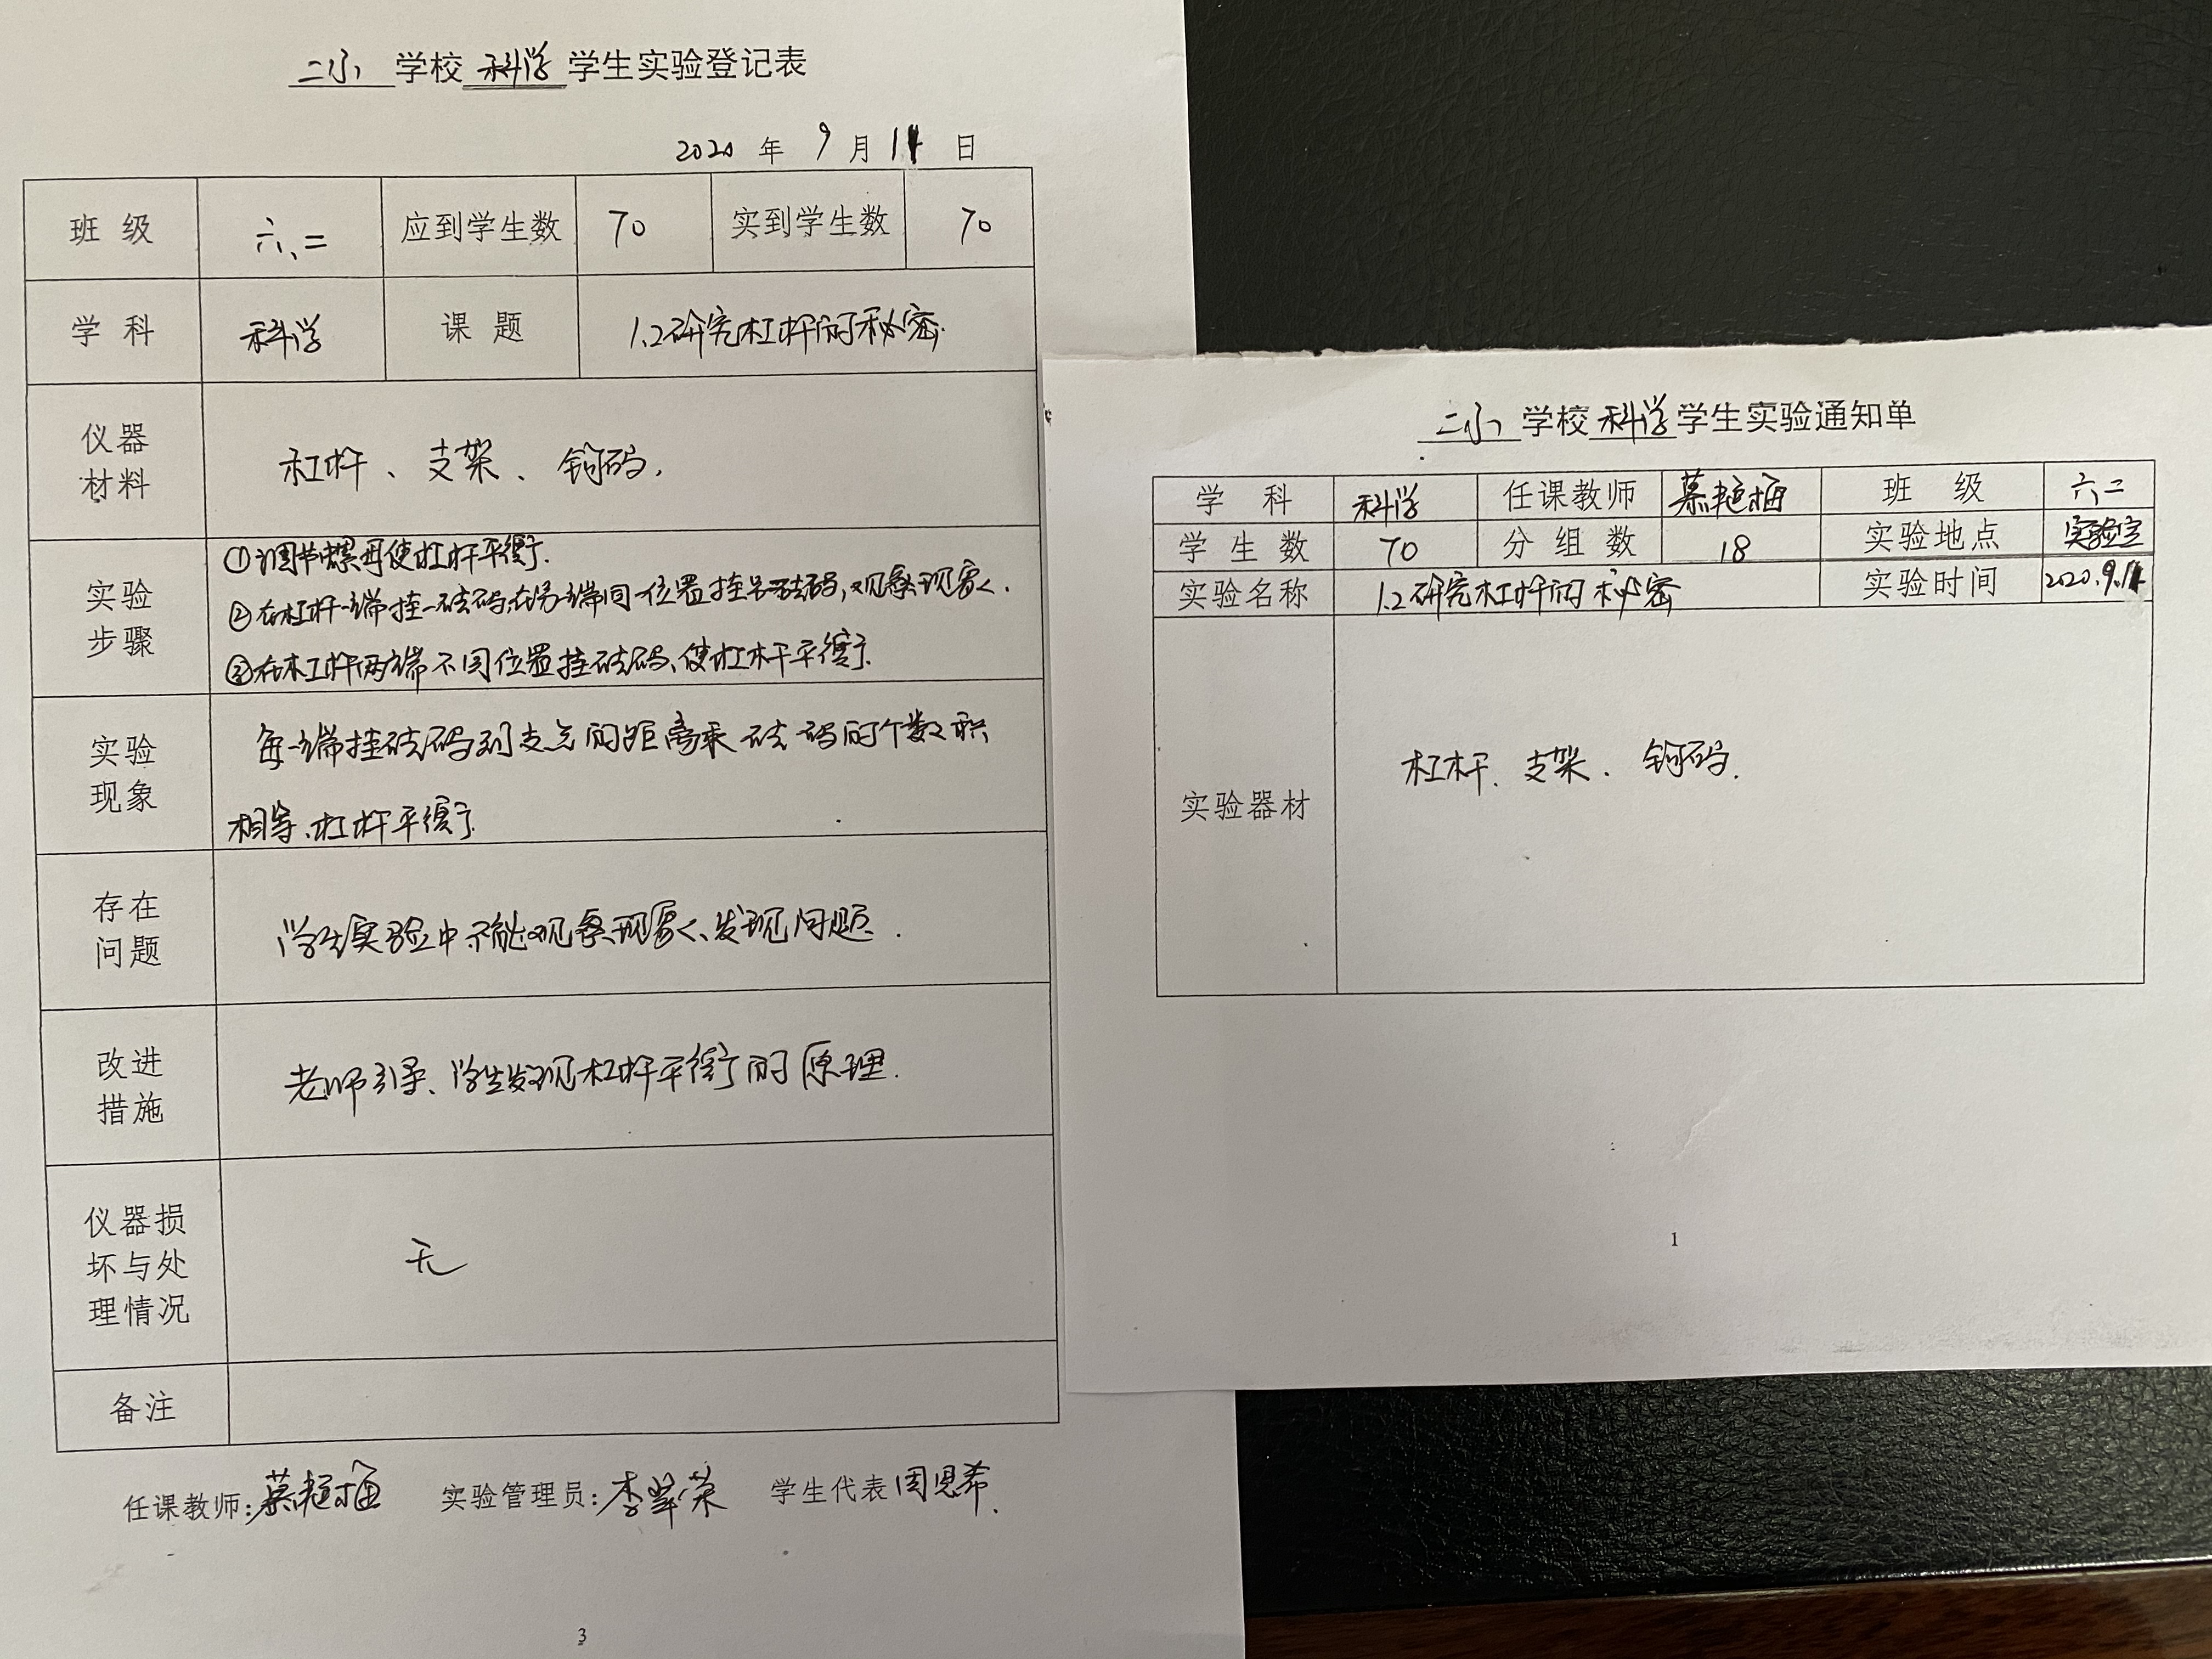 二小 学校 科学 学生实验登记表
2020 年 9 月 11 日
班 级 六、二 应到学生数 70 实到学生数 70
学 科 科学 课 题 1.2研究杠杆的秘密.
仪器
材料
杠杆、支架、钩码,
实验
步骤
①调节螺母使杠杆平衡.
②在杠杆一端挂一砝码,在另一端同一位置挂另一砝码,观察现象.
③在杠杆两端不同位置挂砝码、使杠杆平衡.
实验
现象
每一端挂砝码到支点的距离乘砝码的个数积
相等、杠杆平衡.
存在
问题
学生实验中不能观察现象、发现问题.
改进
措施
老师引导、学生发现杠杆平衡的原理.
仪器损
坏与处
理情况
无
备注
任课教师:慕艳梅 实验管理员:李翠荣 学生代表 周恩希.
3
二小 学校 科学 学生实验通知单
学 科 科学 任课教师 慕艳梅 班 级 六、二
学 生 数 70 分 组 数 18 实验地点 实验室
实验名称 1.2研究杠杆的秘密 实验时间 2020.9.11
实验器材
杠杆、支架、钩码.
1